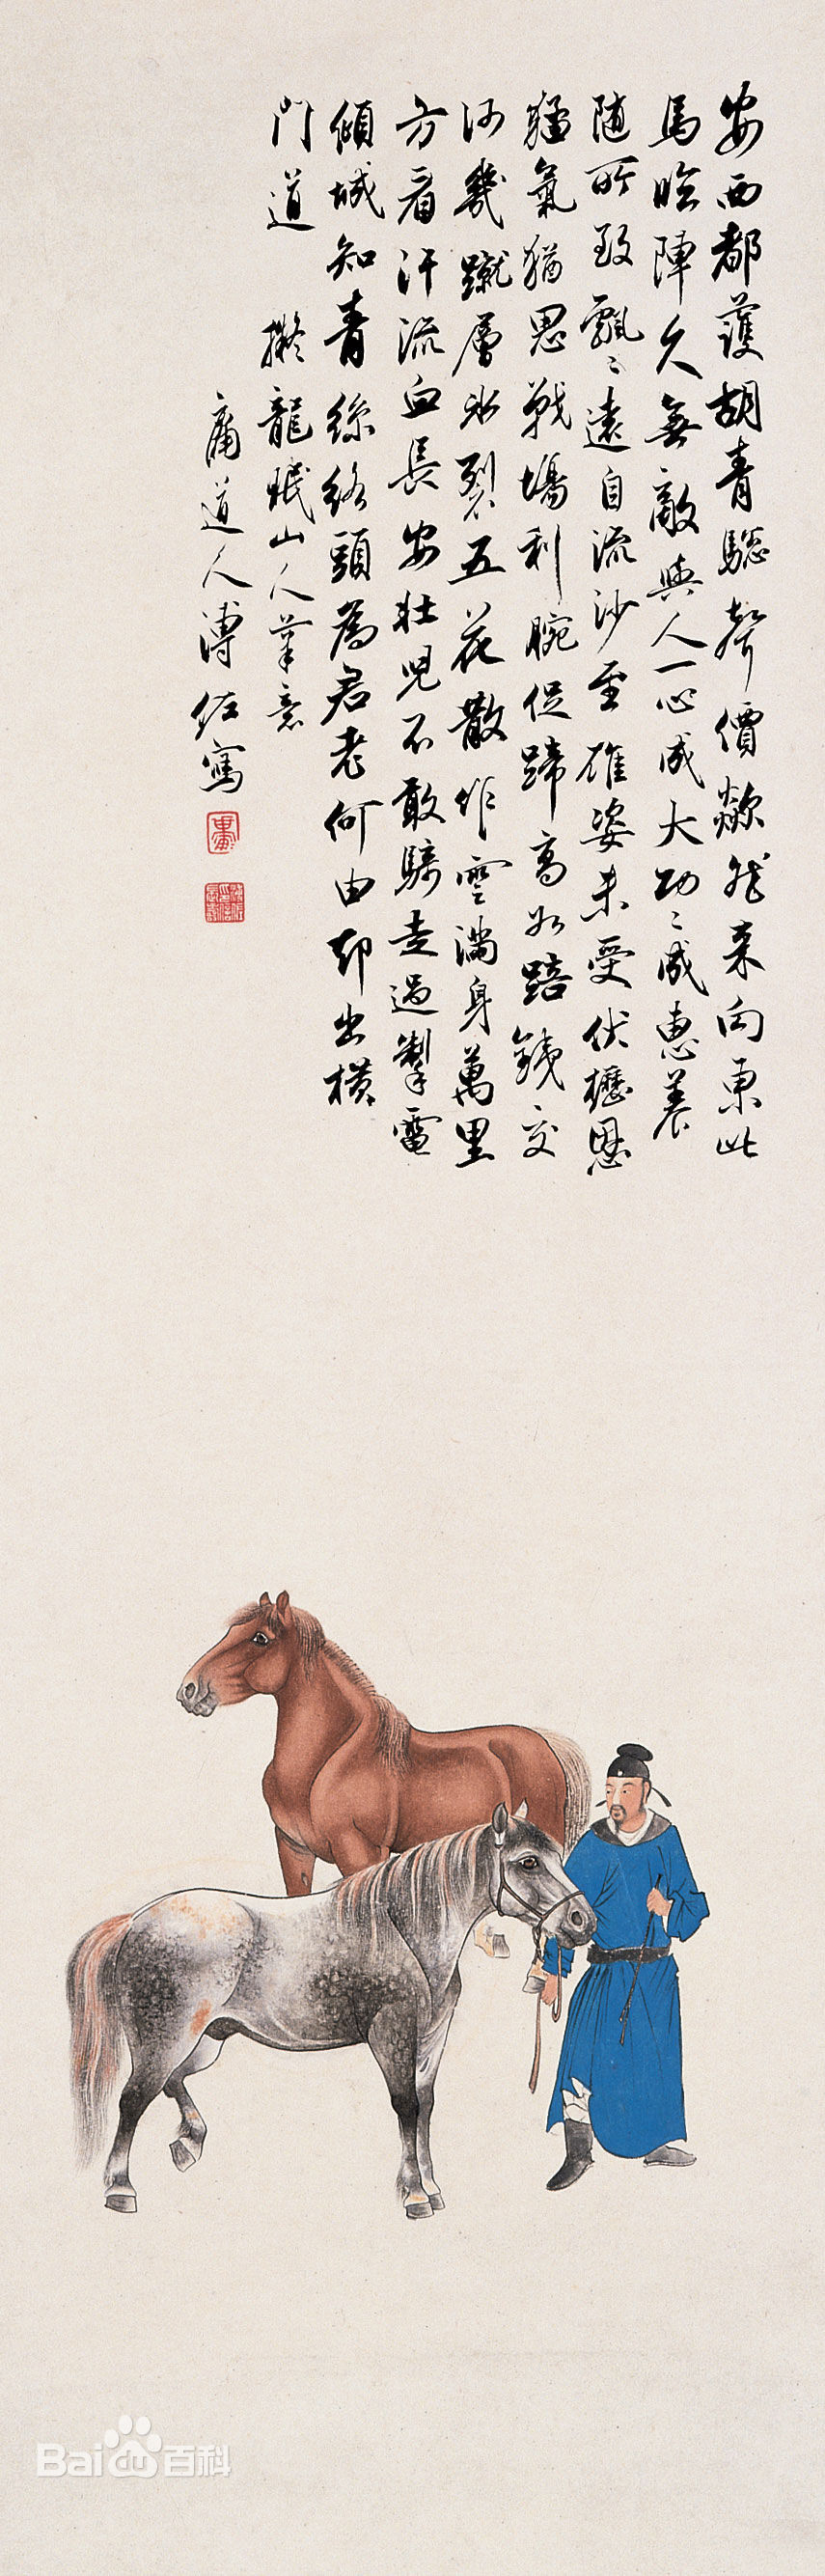 安西都護胡青驄聲價歘然来向東此
馬臨陣久無敵與人一心成大功〻成惠養
随所致飄〻遠自流沙至雄姿未受伏櫪恩
猛氣猶思戰場利腕促蹄高如踣鐵交
河幾蹴層冰裂五花散作雲滿身萬里
方看汗流血長安壯兒不敢騎走過掣電
傾城知青絲絡頭為君老何由却出橫
門道 擬龍眠山人筆意
庸道人溥佐寫
Bai百科